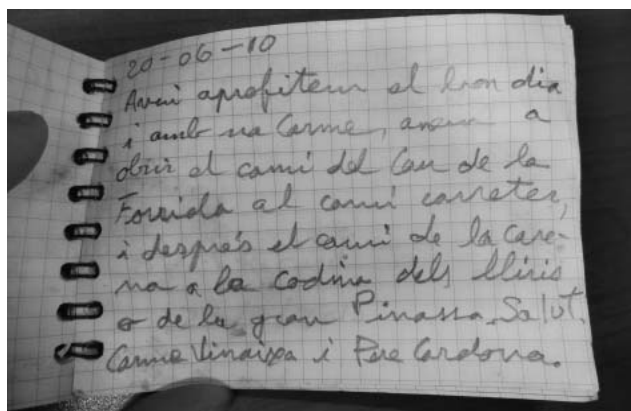 20-06-10
Avui aprofitem el bon dia
i amb na Carme, anem a
obrir el camí del Cau de la
Forrida al camí carreter,
i després el camí de la care-
na a la codina dels lliris
o de la gran Pinassa. Salut.
Carme Vinaixa i Pere Cardona.